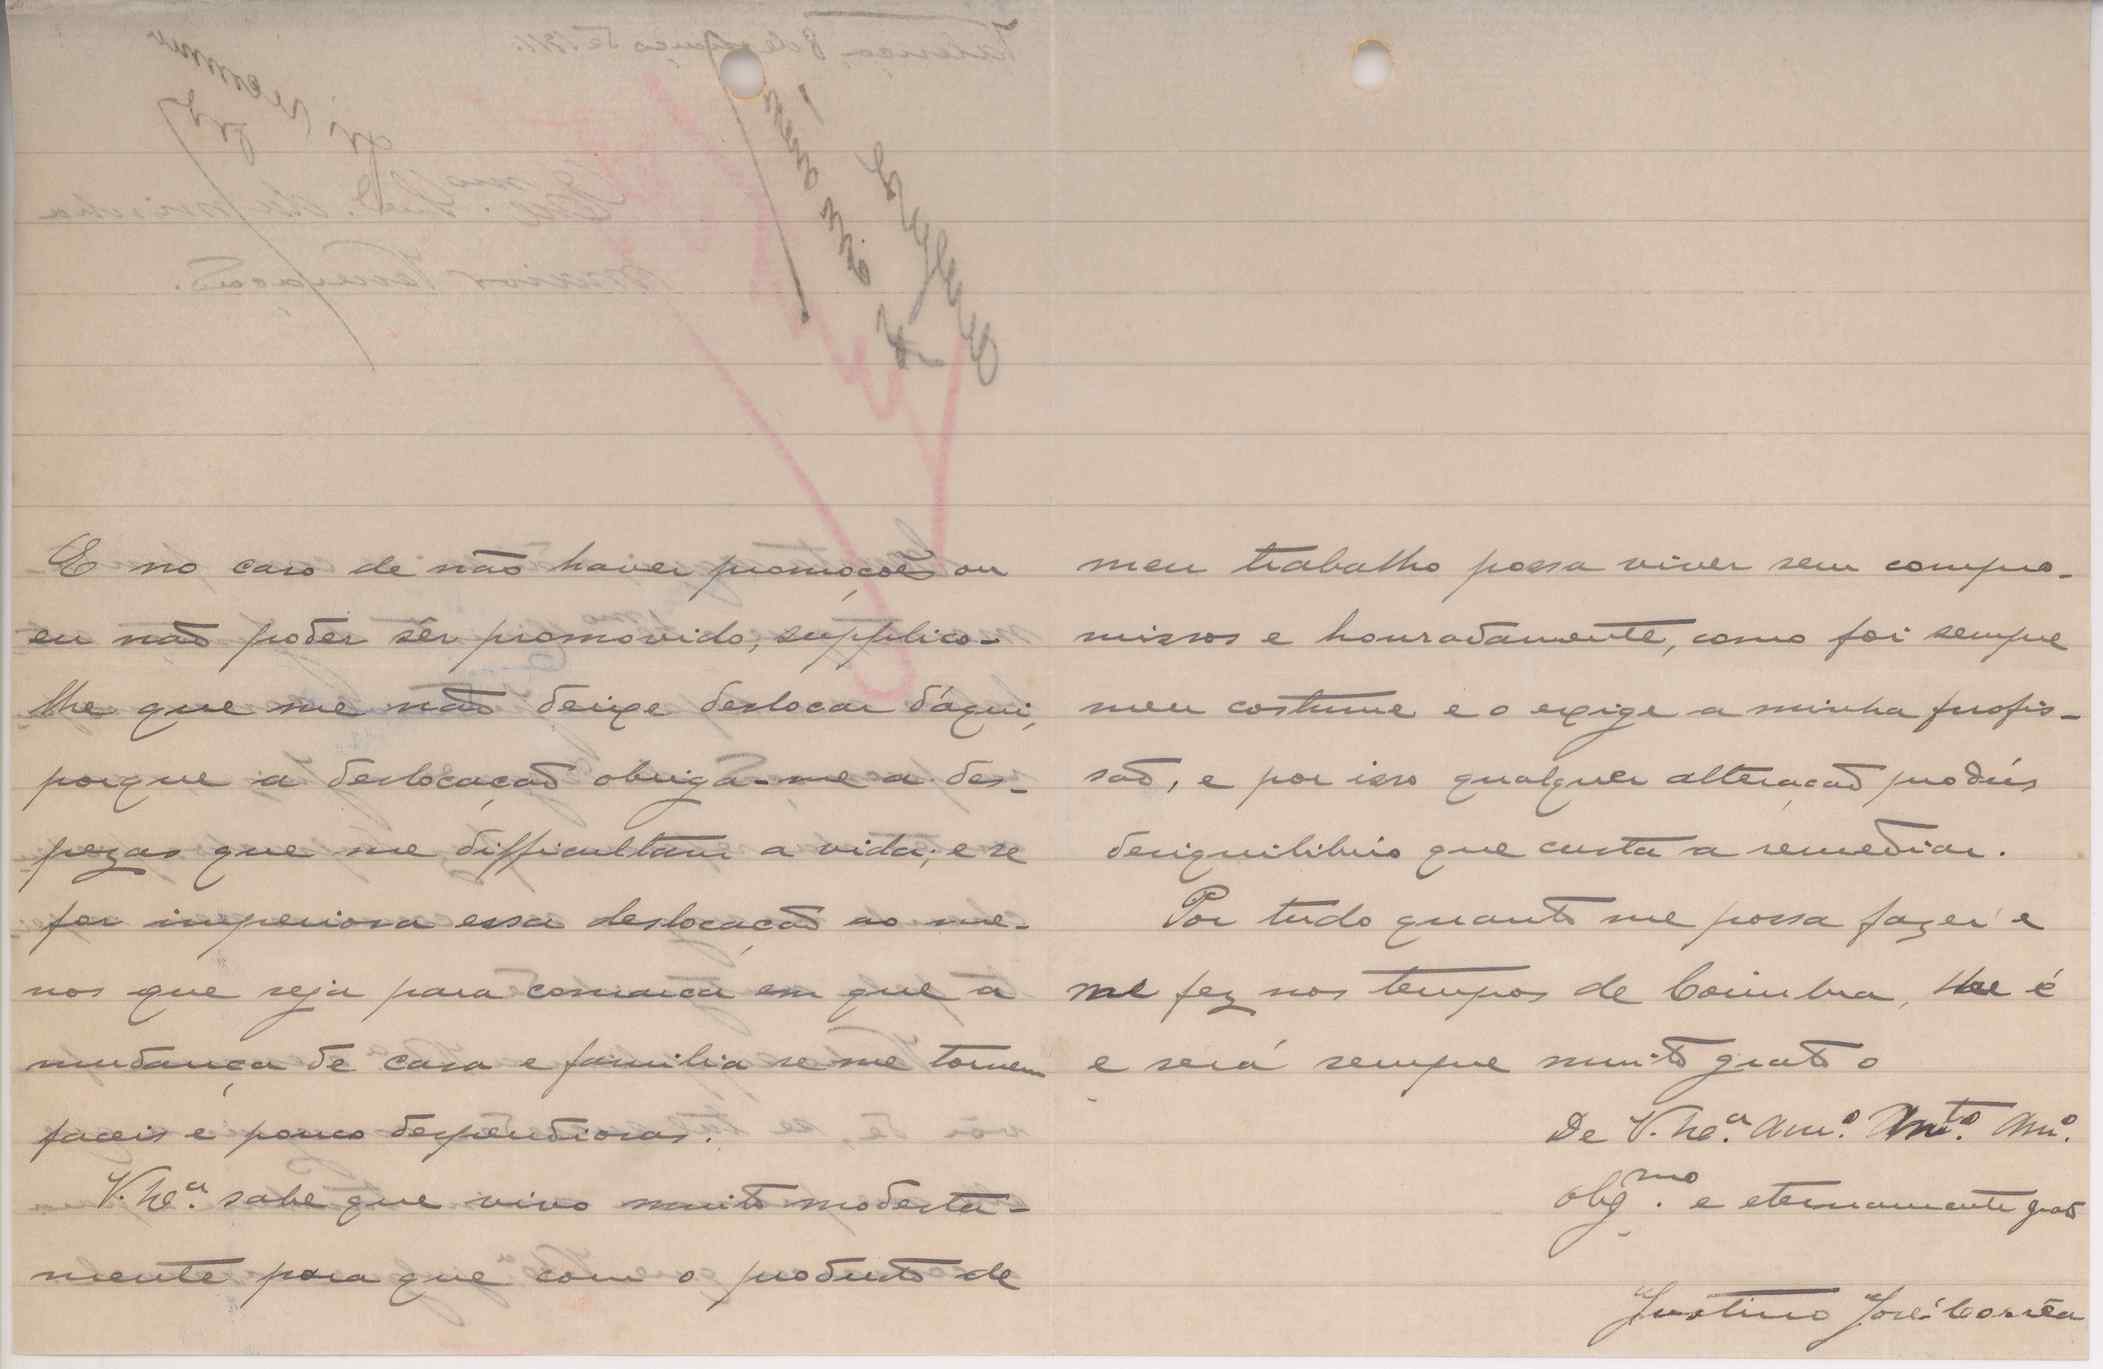 E no caso de não haver promoções ou
eu não poder sêr promovido, supplico-
lhe que me não deixe deslocar d'áqui,
porque a deslocação obriga-me a des-
pezas que me difficultam a vida; e se
for imperiosa essa deslocação ao me-
nos que seja para comarca em que a
mudança de casa e familia se me tornem
faceis e pouco despendiosas.
V. Ex.ª sabe que vivo muito modesta-
mente para que com o producto de
meu trabalho possa viver sem compro-
missos e honradamente, como foi sempre
meu costume e o exige a minha profis-
são, e por isso qualquer alteração produs
desiquilibrio que custa a remediar.
Por tudo quanto me possa fazer e
me fez nos tempos de Coimbra, lhe é
e será sempre muito grato o
De V. Ex.ª Am.º Mto. Am.º
Obg.mo e eternamente grato
Justino José Corrêa